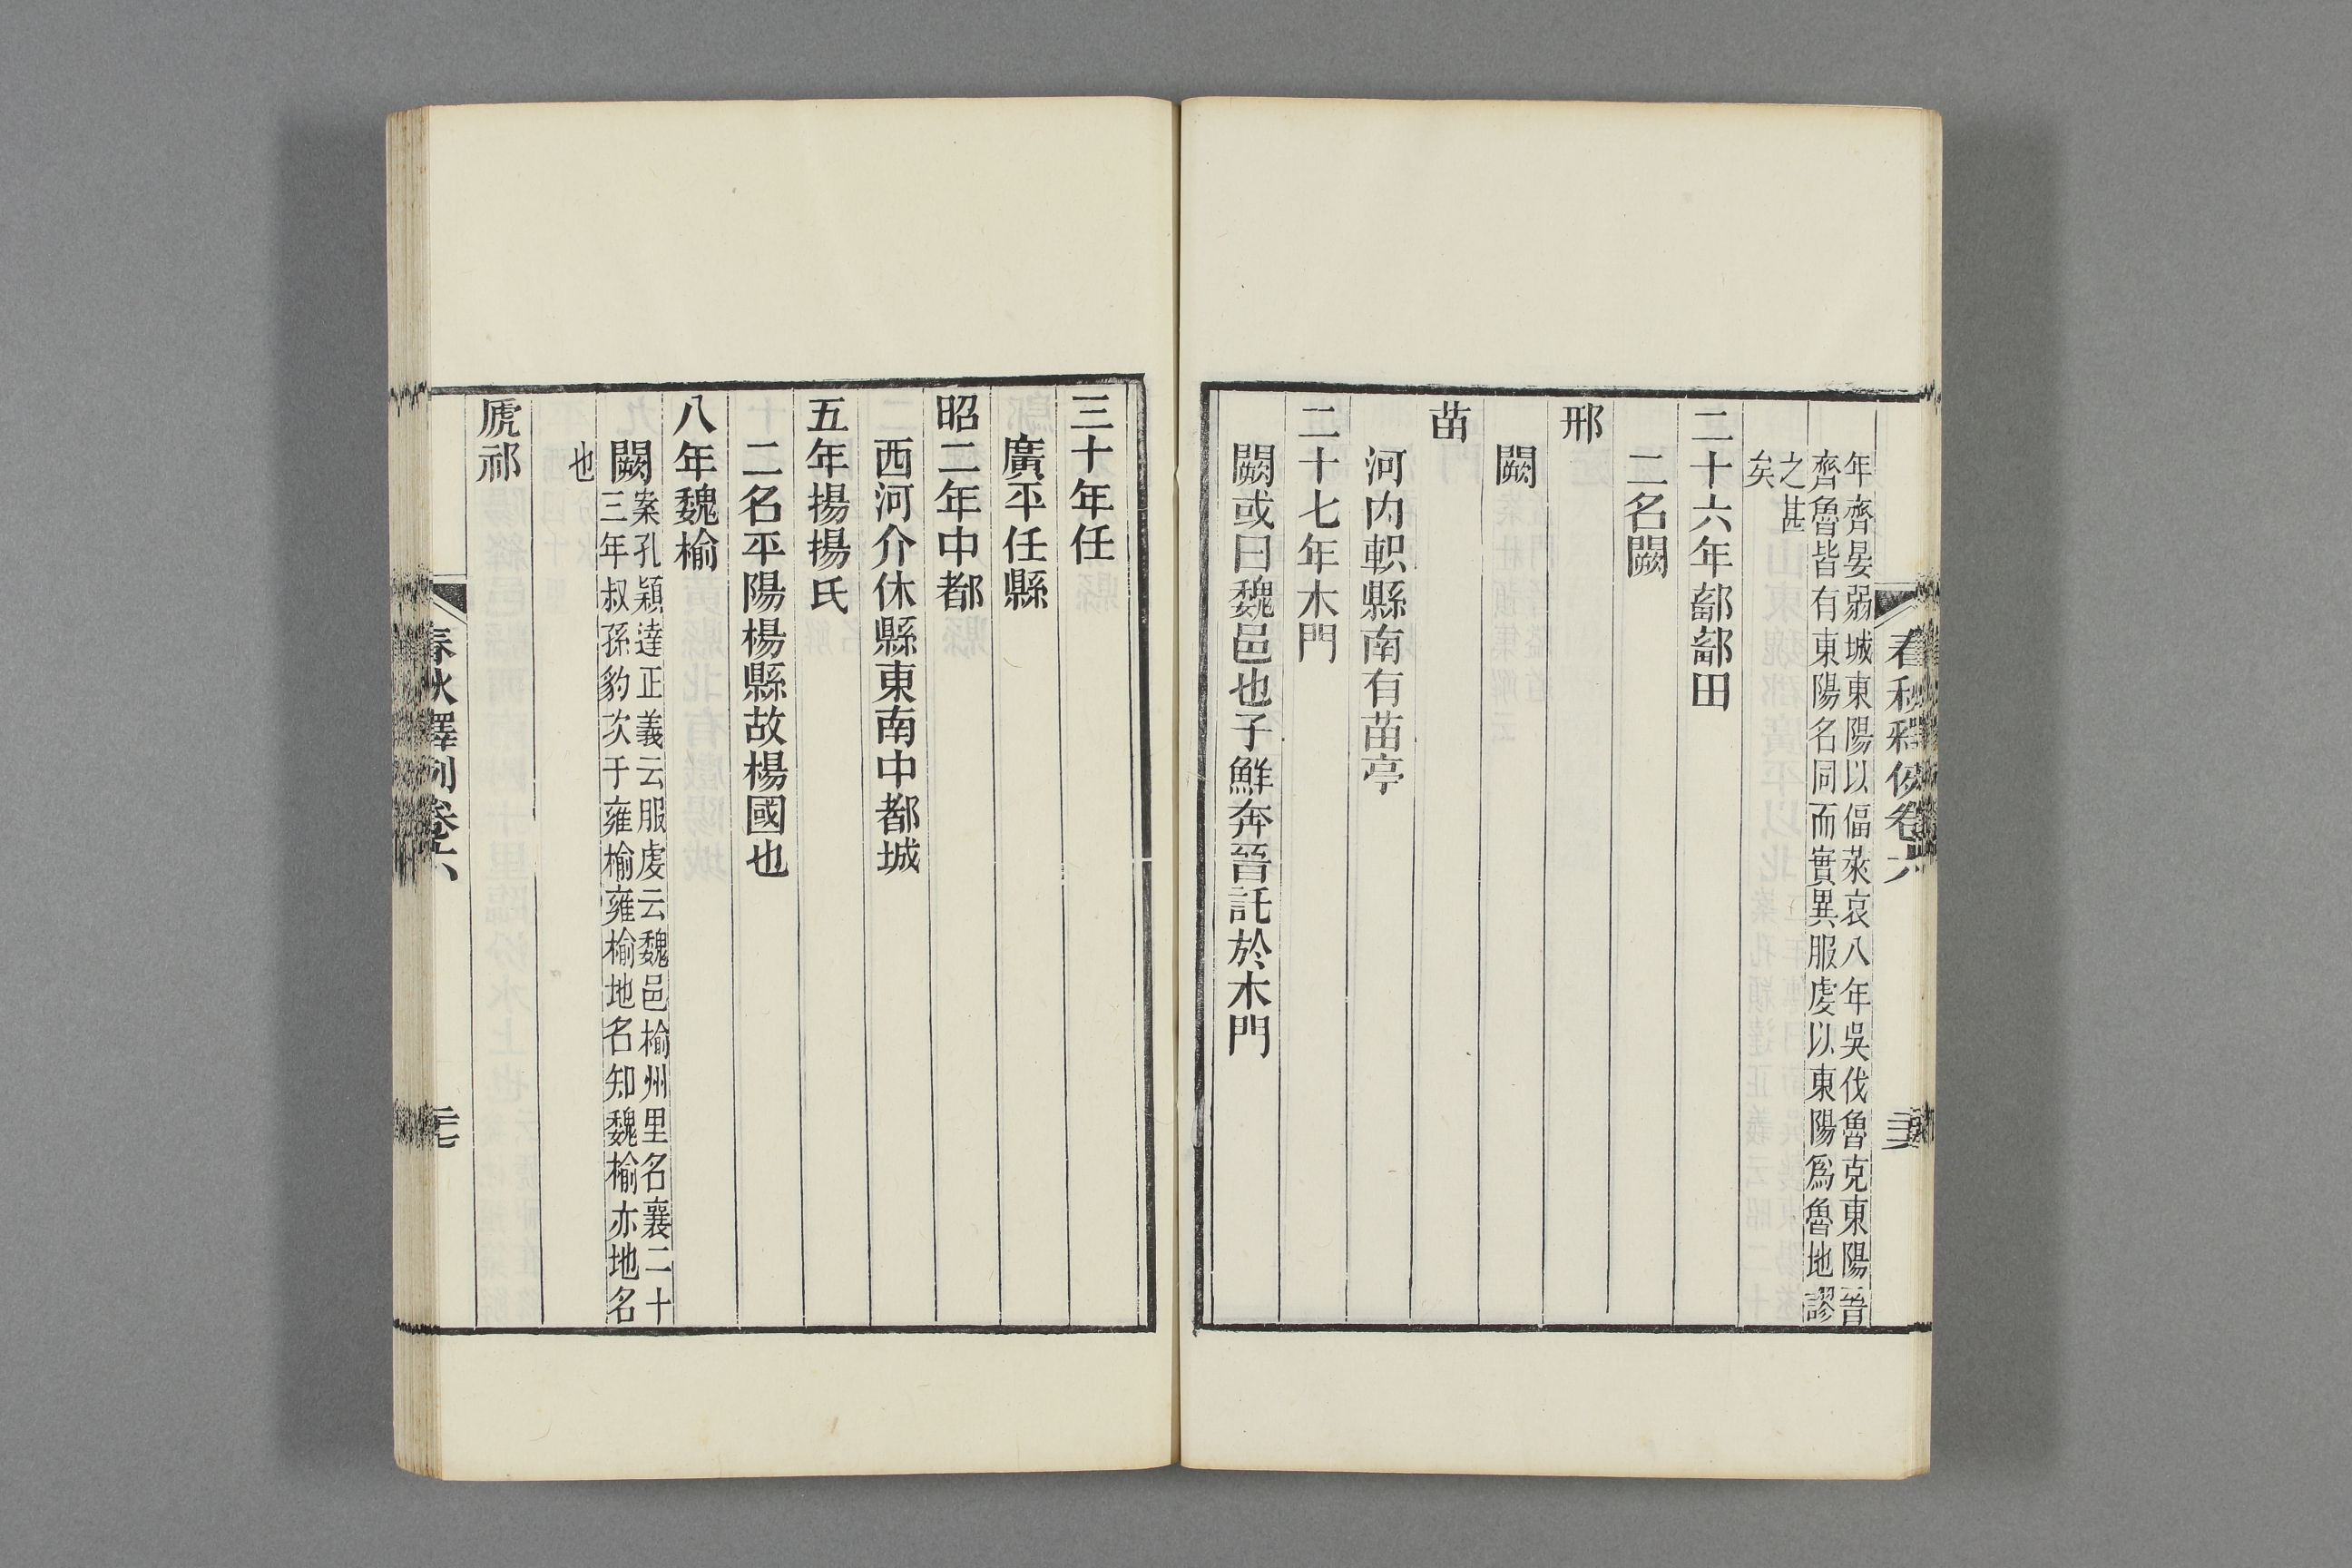 年齊晏弱城東陽以偪萊哀八年吳伐魯克東陽晉
齊魯皆有東陽名同而實異服虔以東陽爲魯地謬
之甚
矣
二十六年鄐鄐田
二名闕
邢
闕
苗
河內軹縣南有苗亭
二十七年木門
闕或曰魏邑也子鮮奔晉託於木門
三十年任
廣平任縣
昭二年中都
西河介休縣東南中都城
五年揚揚氏
二名平陽楊縣故楊國也
八年魏榆
闕案孔穎達正義云服虔云魏邑榆州里名襄二十
三年叔孫豹次于雍榆雍榆地名知魏榆亦地名
也
虒祁
春秋釋例卷六